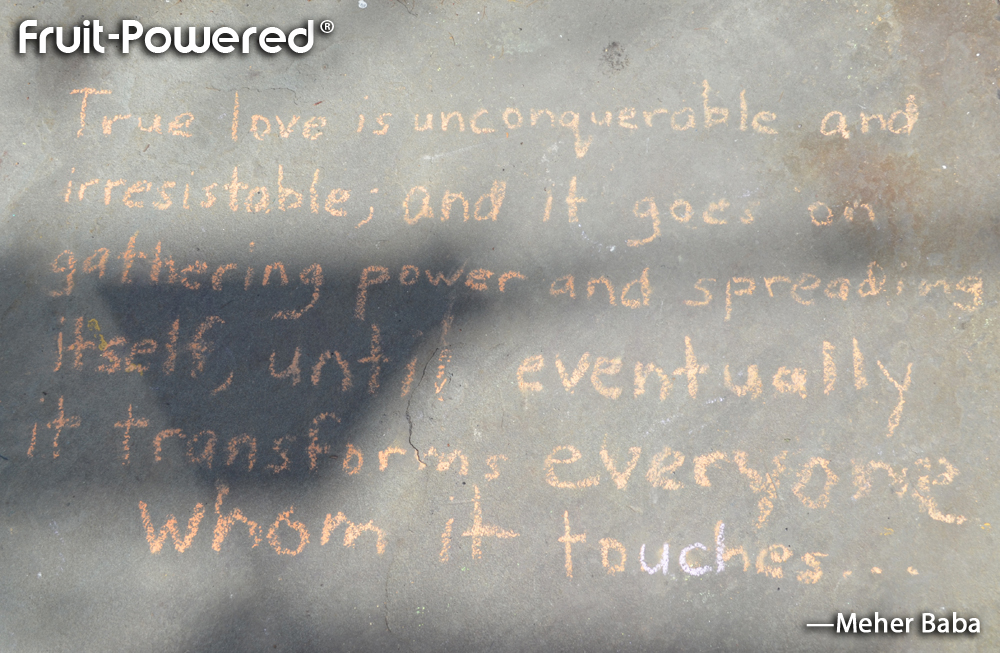 Fruit-Powered®
True love is unconquerable and
irresistable; and it goes on
gathering power and spreading
itself, until eventually
it transforms everyone
whom it touches...
—Meher Baba